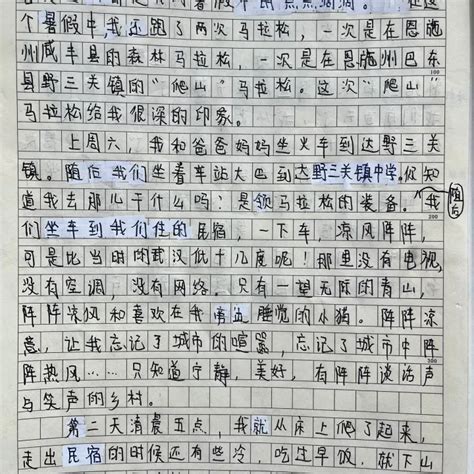 个暑假中我还跑了两次马拉松，一次是在恩施
州咸丰县的森林马拉松，一次是在恩施州巴东
县野三关镇的“爬山”马拉松。这次“爬山”
100
马拉松给我很深的印象。
上周六，我和爸爸妈妈坐火车到达野三关
镇。随后我们坐着车站大巴到达野三关镇中学。你知
道我去那儿干什么吗？是领马拉松的装备。我
随后
200
们坐车到我们住的民宿，一下车，凉风阵阵，
可是比当时的武汉低十几度呢！那里没有电视，
没有空调，没有网络。只有一望无际的青山，
阵阵凉风和喜欢在我旁边睡觉的小猪。阵阵凉
意，让我忘记了城市的喧嚣，忘记了城市中阵
300
阵热风……只知道宁静，美好，有阵阵谈话声
与笑声的乡村。
第二天清晨五点，我就从床上爬了起来，
走出民宿的时候还有些冷，吃过早饭，就下山